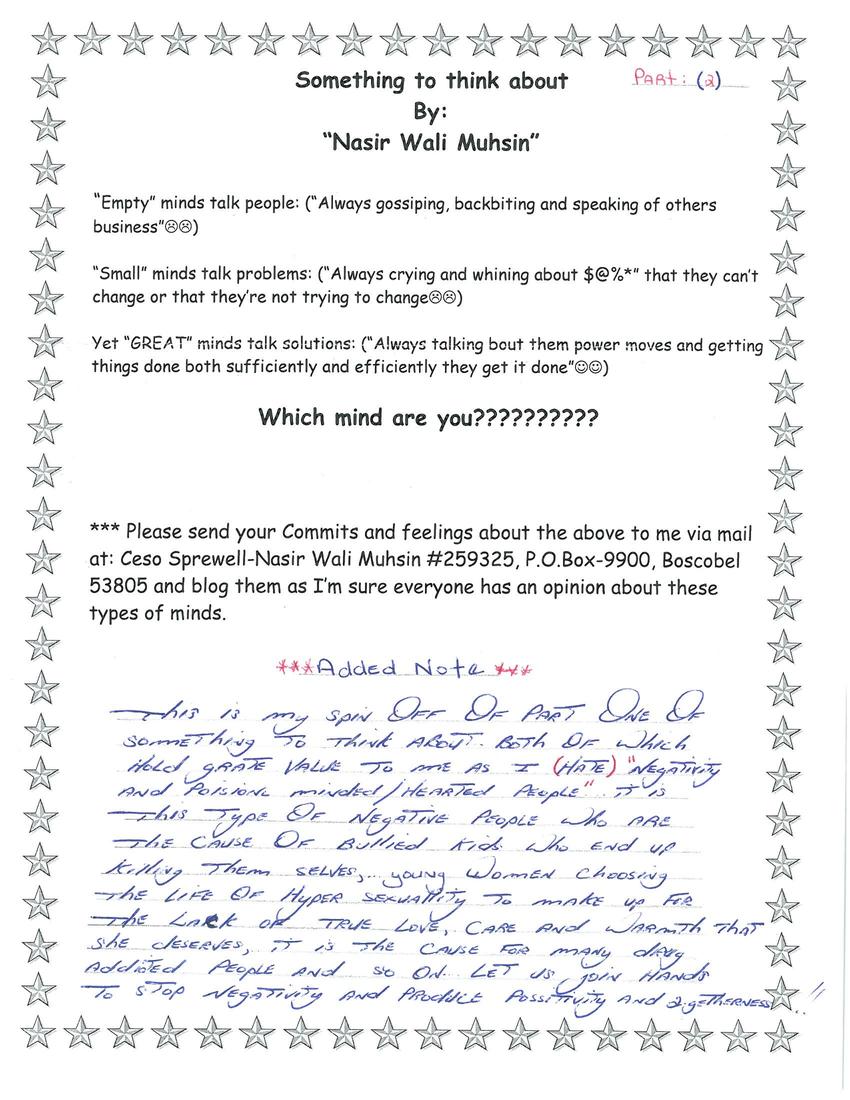 Something to think about
PART: (2)
By:
“Nasir Wali Muhsin”
“Empty” minds talk people: (“Always gossiping, backbiting and speaking of others
business”☹☹)
“Small” minds talk problems: (“Always crying and whining about $@%*” that they can’t
change or that they’re not trying to change☹☹)
Yet “GREAT” minds talk solutions: (“Always talking bout them power moves and getting
things done both sufficiently and efficiently they get it done”☺☺)
Which mind are you??????????
*** Please send your Commits and feelings about the above to me via mail
at: Ceso Sprewell-Nasir Wali Muhsin #259325, P.O.Box-9900, Boscobel
53805 and blog them as I’m sure everyone has an opinion about these
types of minds.
***Added Note***
This is my spin OFF OF PART ONE OF
something To Think ABOUT. BOTH OF which
HOLD GRATE VALUE TO me AS I (HATE) "NEGATIVITY
AND POISIONE minded/HEARTED PEOPLE". iT is
This Type OF NEGATIVE PEOPLE who ARE
THE CAUSE OF BULLIED Kids who END up
Killing Them SELVES,... young WOMEN Choosing
THE LIFE OF HYPER SEXUALITY TO make up FOR
THE LACK OF TRUE LOVE, CARE AND WARMTH THAT
she DESERVES, iT is THE CAUSE FOR many drug
Addicted PEOPLE AND so ON... LET us join HANDS
To STOP NEGATIVITY AND PRODUCE POSSITIVITY AND 2.gETHERNESS...!!